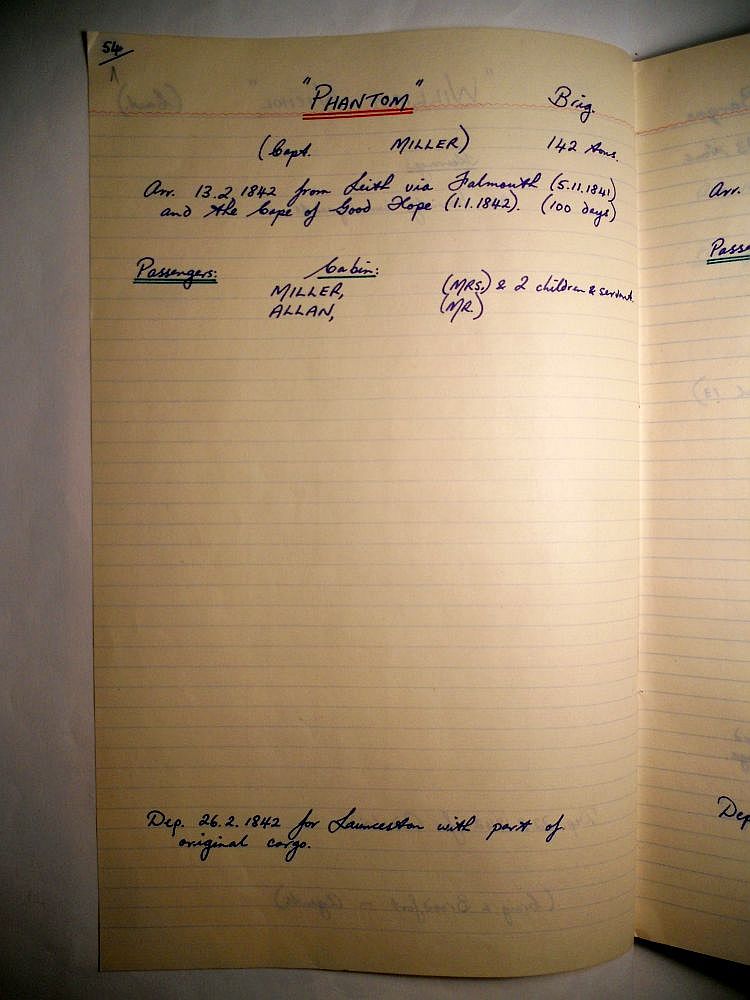 54
"PHANTOM" Brig.
(Capt. MILLER) 142 tons.
Arr. 13.2.1842 from Leith via Falmouth (5.11.1841)
and the Cape of Good Hope (1.1.1842). (100 days)
Passengers: Cabin:
MILLER, (MRS.) & 2 children & servant.
ALLAN, (MR.)
Dep. 26.2.1842 for Launceston with part of
original cargo.
Arr.
Passe
Dep